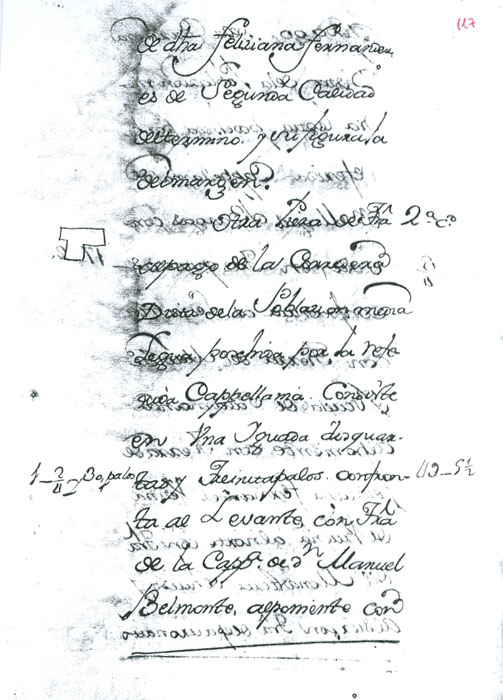 117
de dha feliziana fernandez
es de Segunda Calidad
de termino y su figura la
del margen.
Otra Pieza de tra 2ª cd
al pago de la Carrera
Dista de la Poblaz.on media
legua posehida por la refe
rida Cappellania Consiste
en Una Iguada dos quar-
1-2/4-y 30 palos tas y Treinta palos confron- 119-5½
ta al Levante con Tra
de la Capp.ª de d.n Manuel
Belmonte, alponiente con